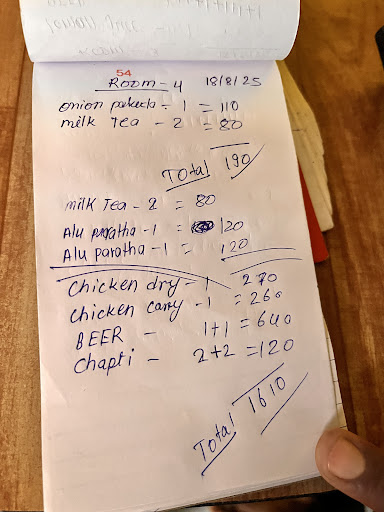 54
Room - 4 18/8/25
onion pakoda - 1 = 110
milk Tea - 2 = 80
Total 190
milk Tea - 2 = 80
Alu paratha - 1 = 120
Alu paratha - 1 = 120
Chicken dry - 1 270
Chicken carry - 1 = 260
BEER - 1+1 = 640
Chapti - 2+2 = 120
Total 1610